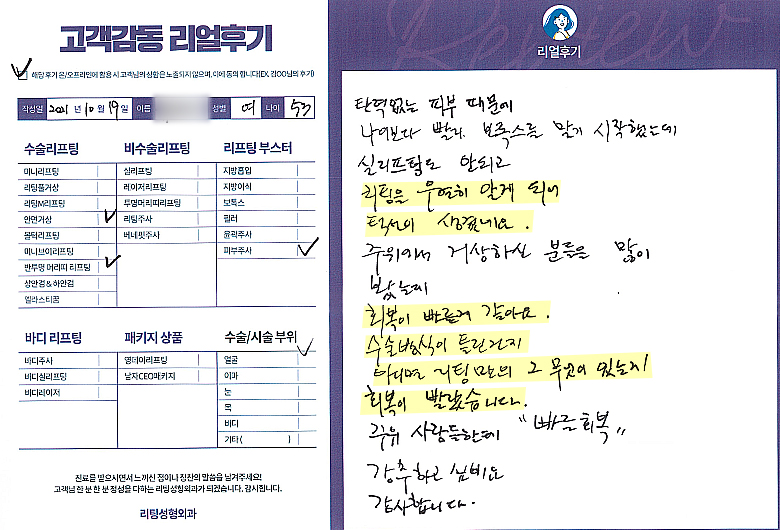 고객감동 리얼후기
해당 후기 온/오프라인에 활용 시 고객님의 성함은 노출되지 않으며, 이에 동의 합니다(EX. 김OO님의 후기)
작성일 2021 년 10 월 19 일 이름 성별 여 나이 53
수술리프팅
미니리프팅
리팅풀거상
리팅M리프팅
안면거상
풀턱리프팅
미니브이리프팅
반투명 머리띠 리프팅
상안검 & 하안검
엘라스티꿈
비수술리프팅
실리프팅
레이저리프팅
투명머리띠리프팅
리팅주사
베네핏주사
리프팅 부스터
지방흡입
지방이식
보톡스
필러
윤곽주사
피부주사
바디 리프팅
바디주사
바디실리프팅
바디레이저
패키지 상품
영데이리프팅
남자CEO패키지
수술/시술 부위
얼굴
이마
눈
목
바디
기타 ( )
진료를 받으시면서 느끼신 점이나 칭찬의 말씀을 남겨주세요!
고객님 한 분 한 분 정성을 다하는 리팅성형외과가 되겠습니다. 감사합니다.
리팅성형외과
Review
리얼후기
탄력없는 피부 때문에
나이보다 빨리 보톡스를 맞기 시작했는데
실리프팅도 안되고
리팅은 우연히 알게 되어
턱선이 생겼네요.
주위에서 거상하신 분들은 많이
봤는데
회복이 빠른거 같아요.
수술방식이 틀린건지
아니면 리팅만의 그 무엇이 있는지
회복이 빨랐습니다.
주위 사람들한테 "빠른회복"
강추하고 싶네요
감사합니다.